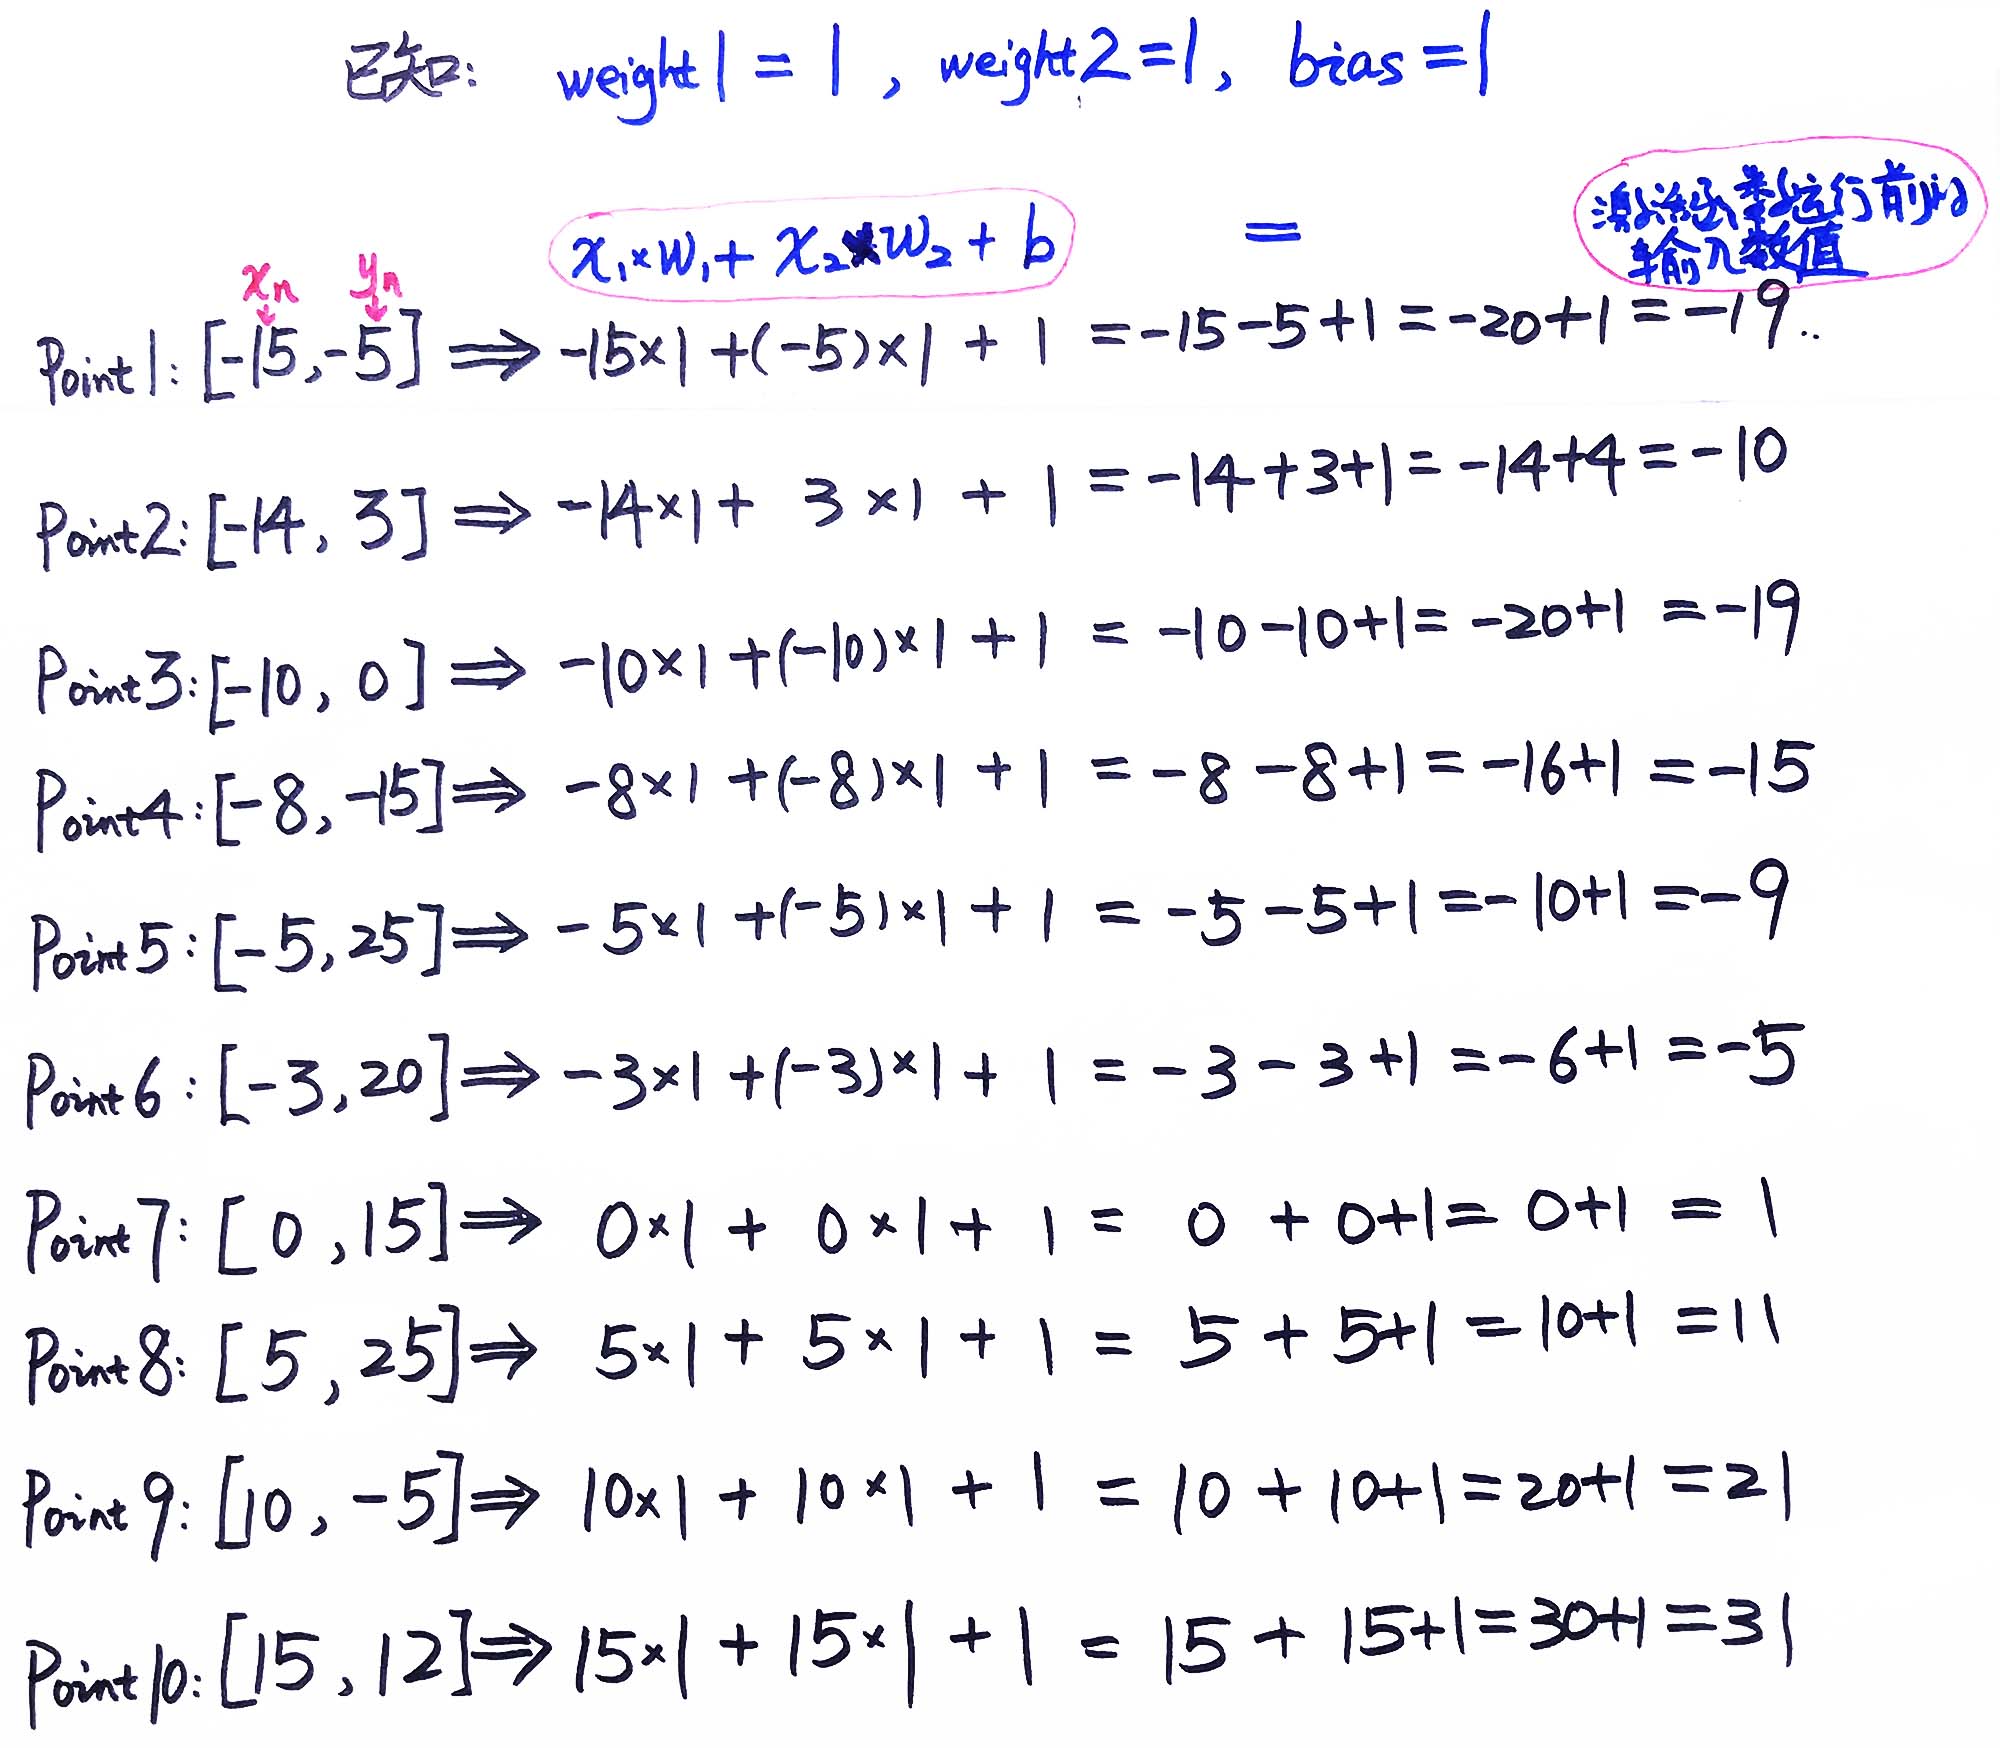 已知: weight1 = 1, weight2 = 1, bias = 1
x₁×w₁ + x₂×w₂ + b = 激活函数运行前的
输入数值
xₙ yₙ
↓ ↓
Point1: [-15, -5] ⇒ -15×1 + (-5)×1 + 1 = -15-5+1 = -20+1 = -19..
Point2: [-14, 3] ⇒ -14×1 + 3×1 + 1 = -14+3+1 = -14+4 = -10
Point3: [-10, 0] ⇒ -10×1 + (-10)×1 + 1 = -10-10+1 = -20+1 = -19
Point4: [-8, -15] ⇒ -8×1 + (-8)×1 + 1 = -8-8+1 = -16+1 = -15
Point5: [-5, 25] ⇒ -5×1 + (-5)×1 + 1 = -5-5+1 = -10+1 = -9
Point6: [-3, 20] ⇒ -3×1 + (-3)×1 + 1 = -3-3+1 = -6+1 = -5
Point7: [0, 15] ⇒ 0×1 + 0×1 + 1 = 0+0+1 = 0+1 = 1
Point8: [5, 25] ⇒ 5×1 + 5×1 + 1 = 5+5+1 = 10+1 = 11
Point9: [10, -5] ⇒ 10×1 + 10×1 + 1 = 10+10+1 = 20+1 = 21
Point10: [15, 12] ⇒ 15×1 + 15×1 + 1 = 15+15+1 = 30+1 = 31